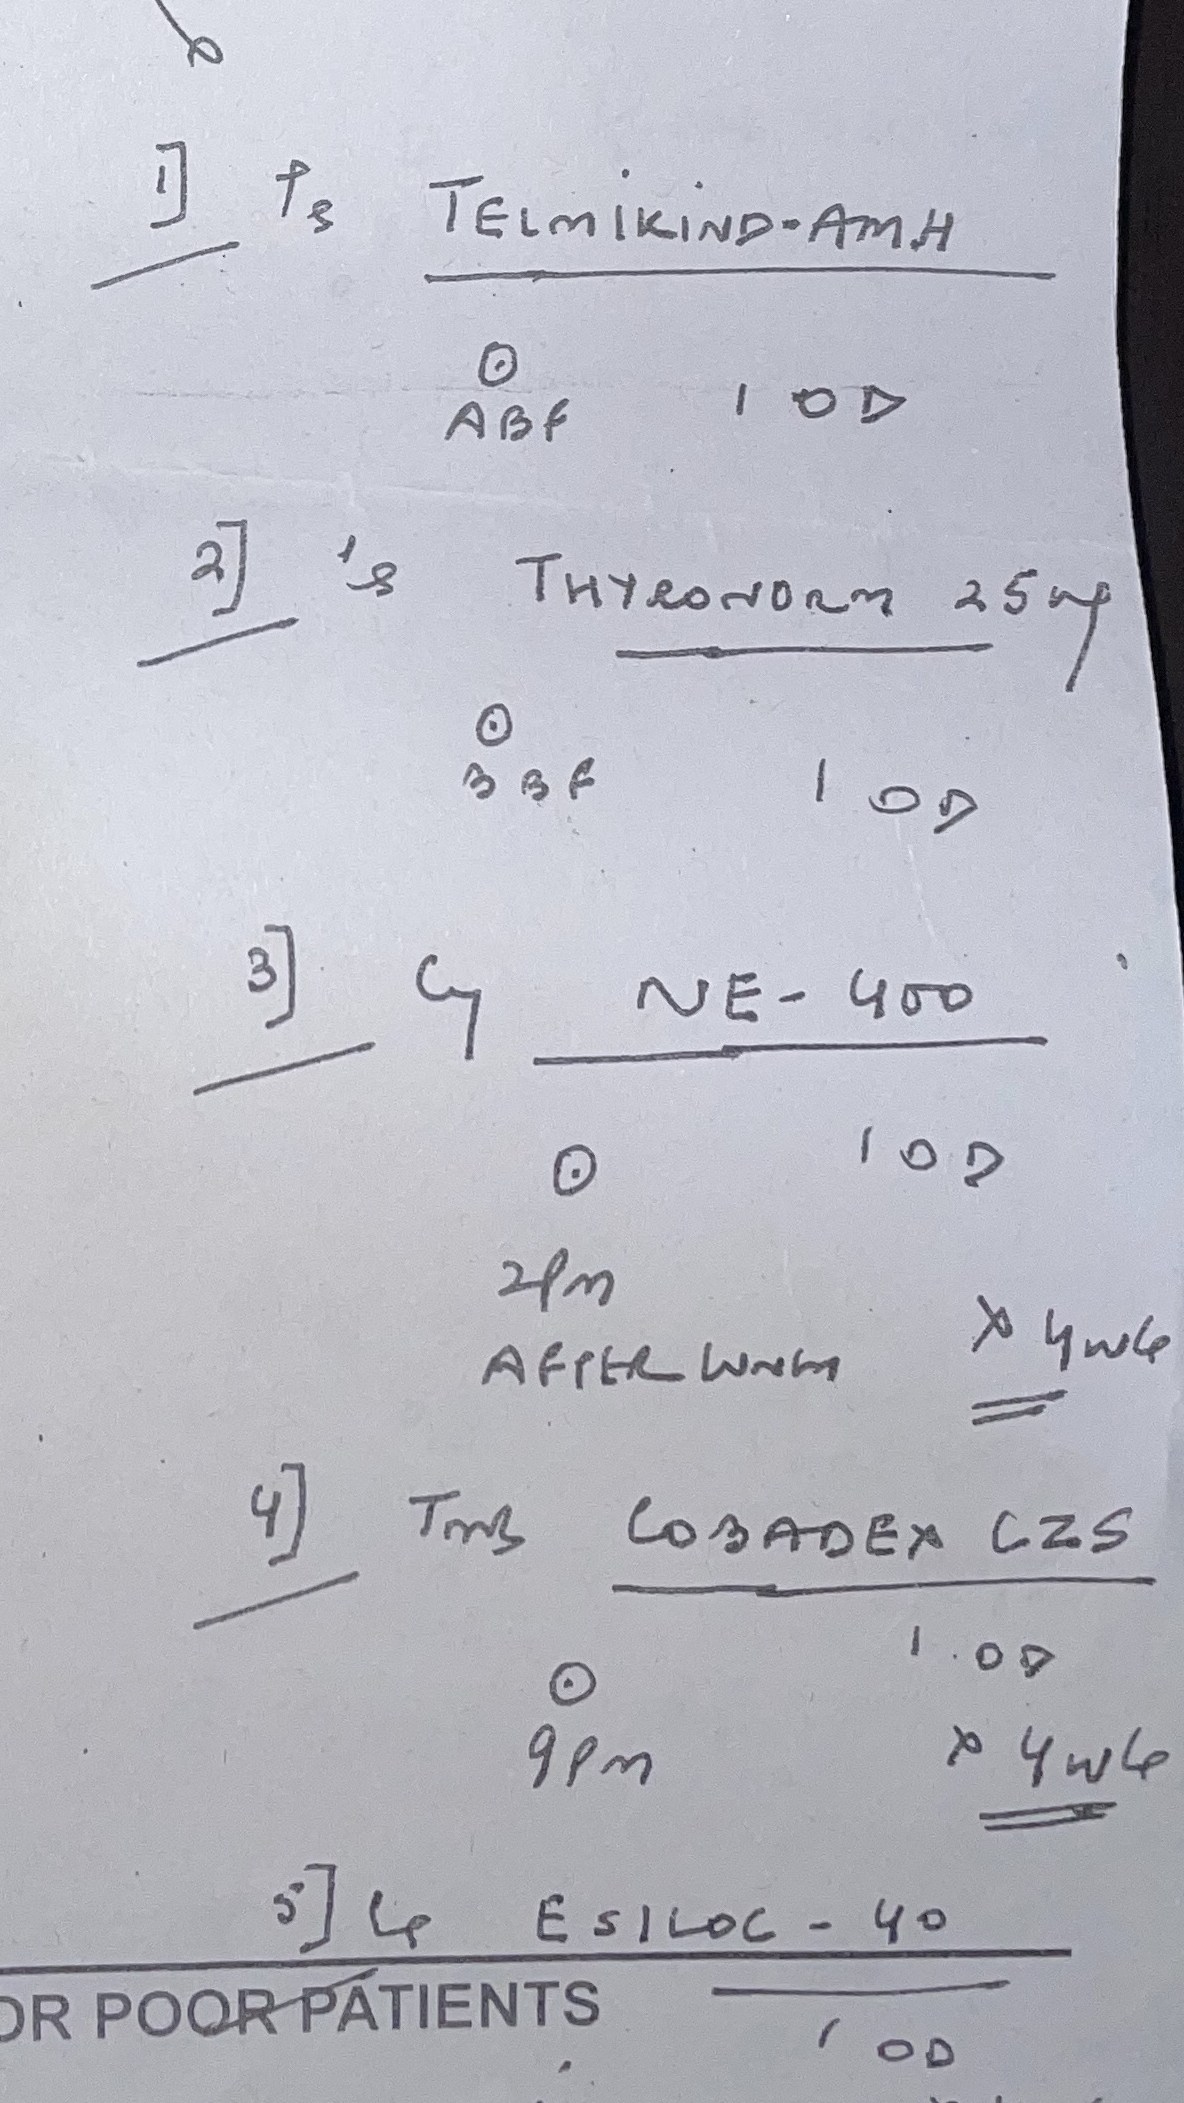 1] TELMIKIND-AMH
ABF 1 OD
2] THYRONORM 25mg
BBF 1 OD
3] NE-400
1 OD
2PM
AFTER LUNCH
x 4
4] TAB COBADEX CZS
1 OD
9PM
x 4
5] ESILOC-40
OR POOR PATIENTS
1 OD